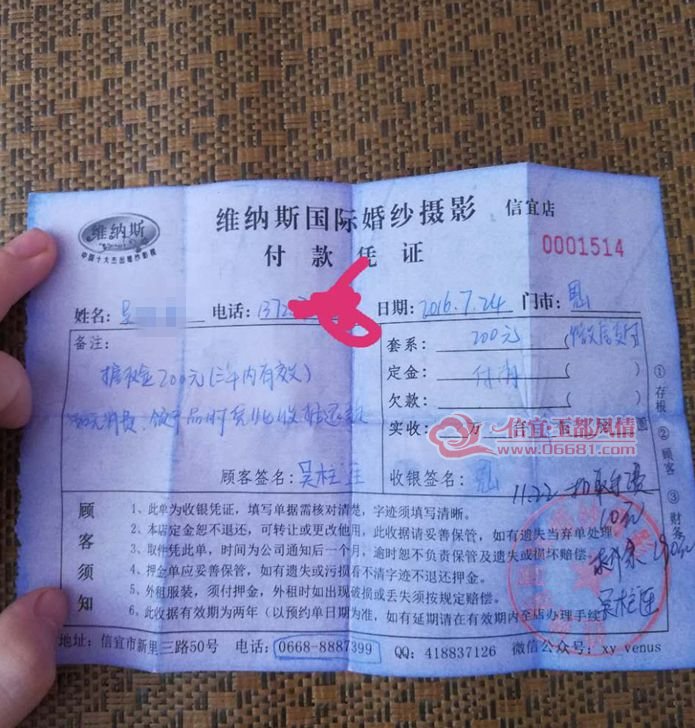 维纳斯
中国十大杰出婚纱影楼
维纳斯国际婚纱摄影 信宜店
付款凭证
0001514
姓名: 吴 电话: 1372 日期: 2016.7.24 门市:
备注:
套系: 200元 ( )
定金: 付清 ( )
欠款: ( )
实收: 万
200元(三年内有效)
信宜玉都风情
www.06681.com
顾客签名: 吴柱连
收银签名:
11.22
顾客须知
1、此单为收银凭证，填写单据需核对清楚，字迹须填写清晰。
2、本店定金恕不退还，可转让或更改他用，此收据请妥善保管，如有遗失当弃单处理。
3、取件凭此单，时间为公司通知后一个月，逾时恕不负责保管及遗失或损坏赔偿。
4、押金单应妥善保管，如有遗失或污损看不清字迹不退还押金。
5、外租服装，须付押金，外租时如出现破损或丢失须按规定赔偿。
6、此收据有效期为两年（以预约单日期为准，如有延期请在有效期内至店办理手续）
吴柱连
①存根 ②顾客 ③财务
地址: 信宜市新里三路50号 电话: 0668-8887399 QQ: 418837126 微信公众号: xy venus